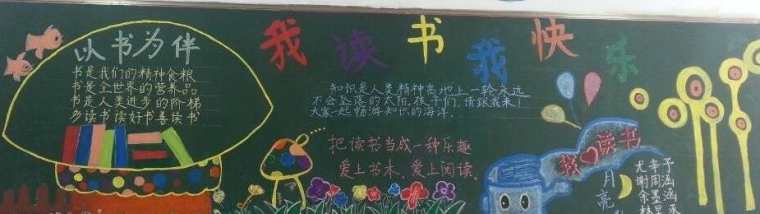 以书为伴
书是我们的精神食粮
书是全世界的营养品
书是人类进步的阶梯
多读书读好书善读书
我读书我快乐
知识是人类精神高地上一轮永远
不会坠落的太阳，孩子们，请跟我来！
大家一起畅游知识的海洋．
把读书当成一种乐趣
爱上书本、爱上阅读．
我读书
月亮